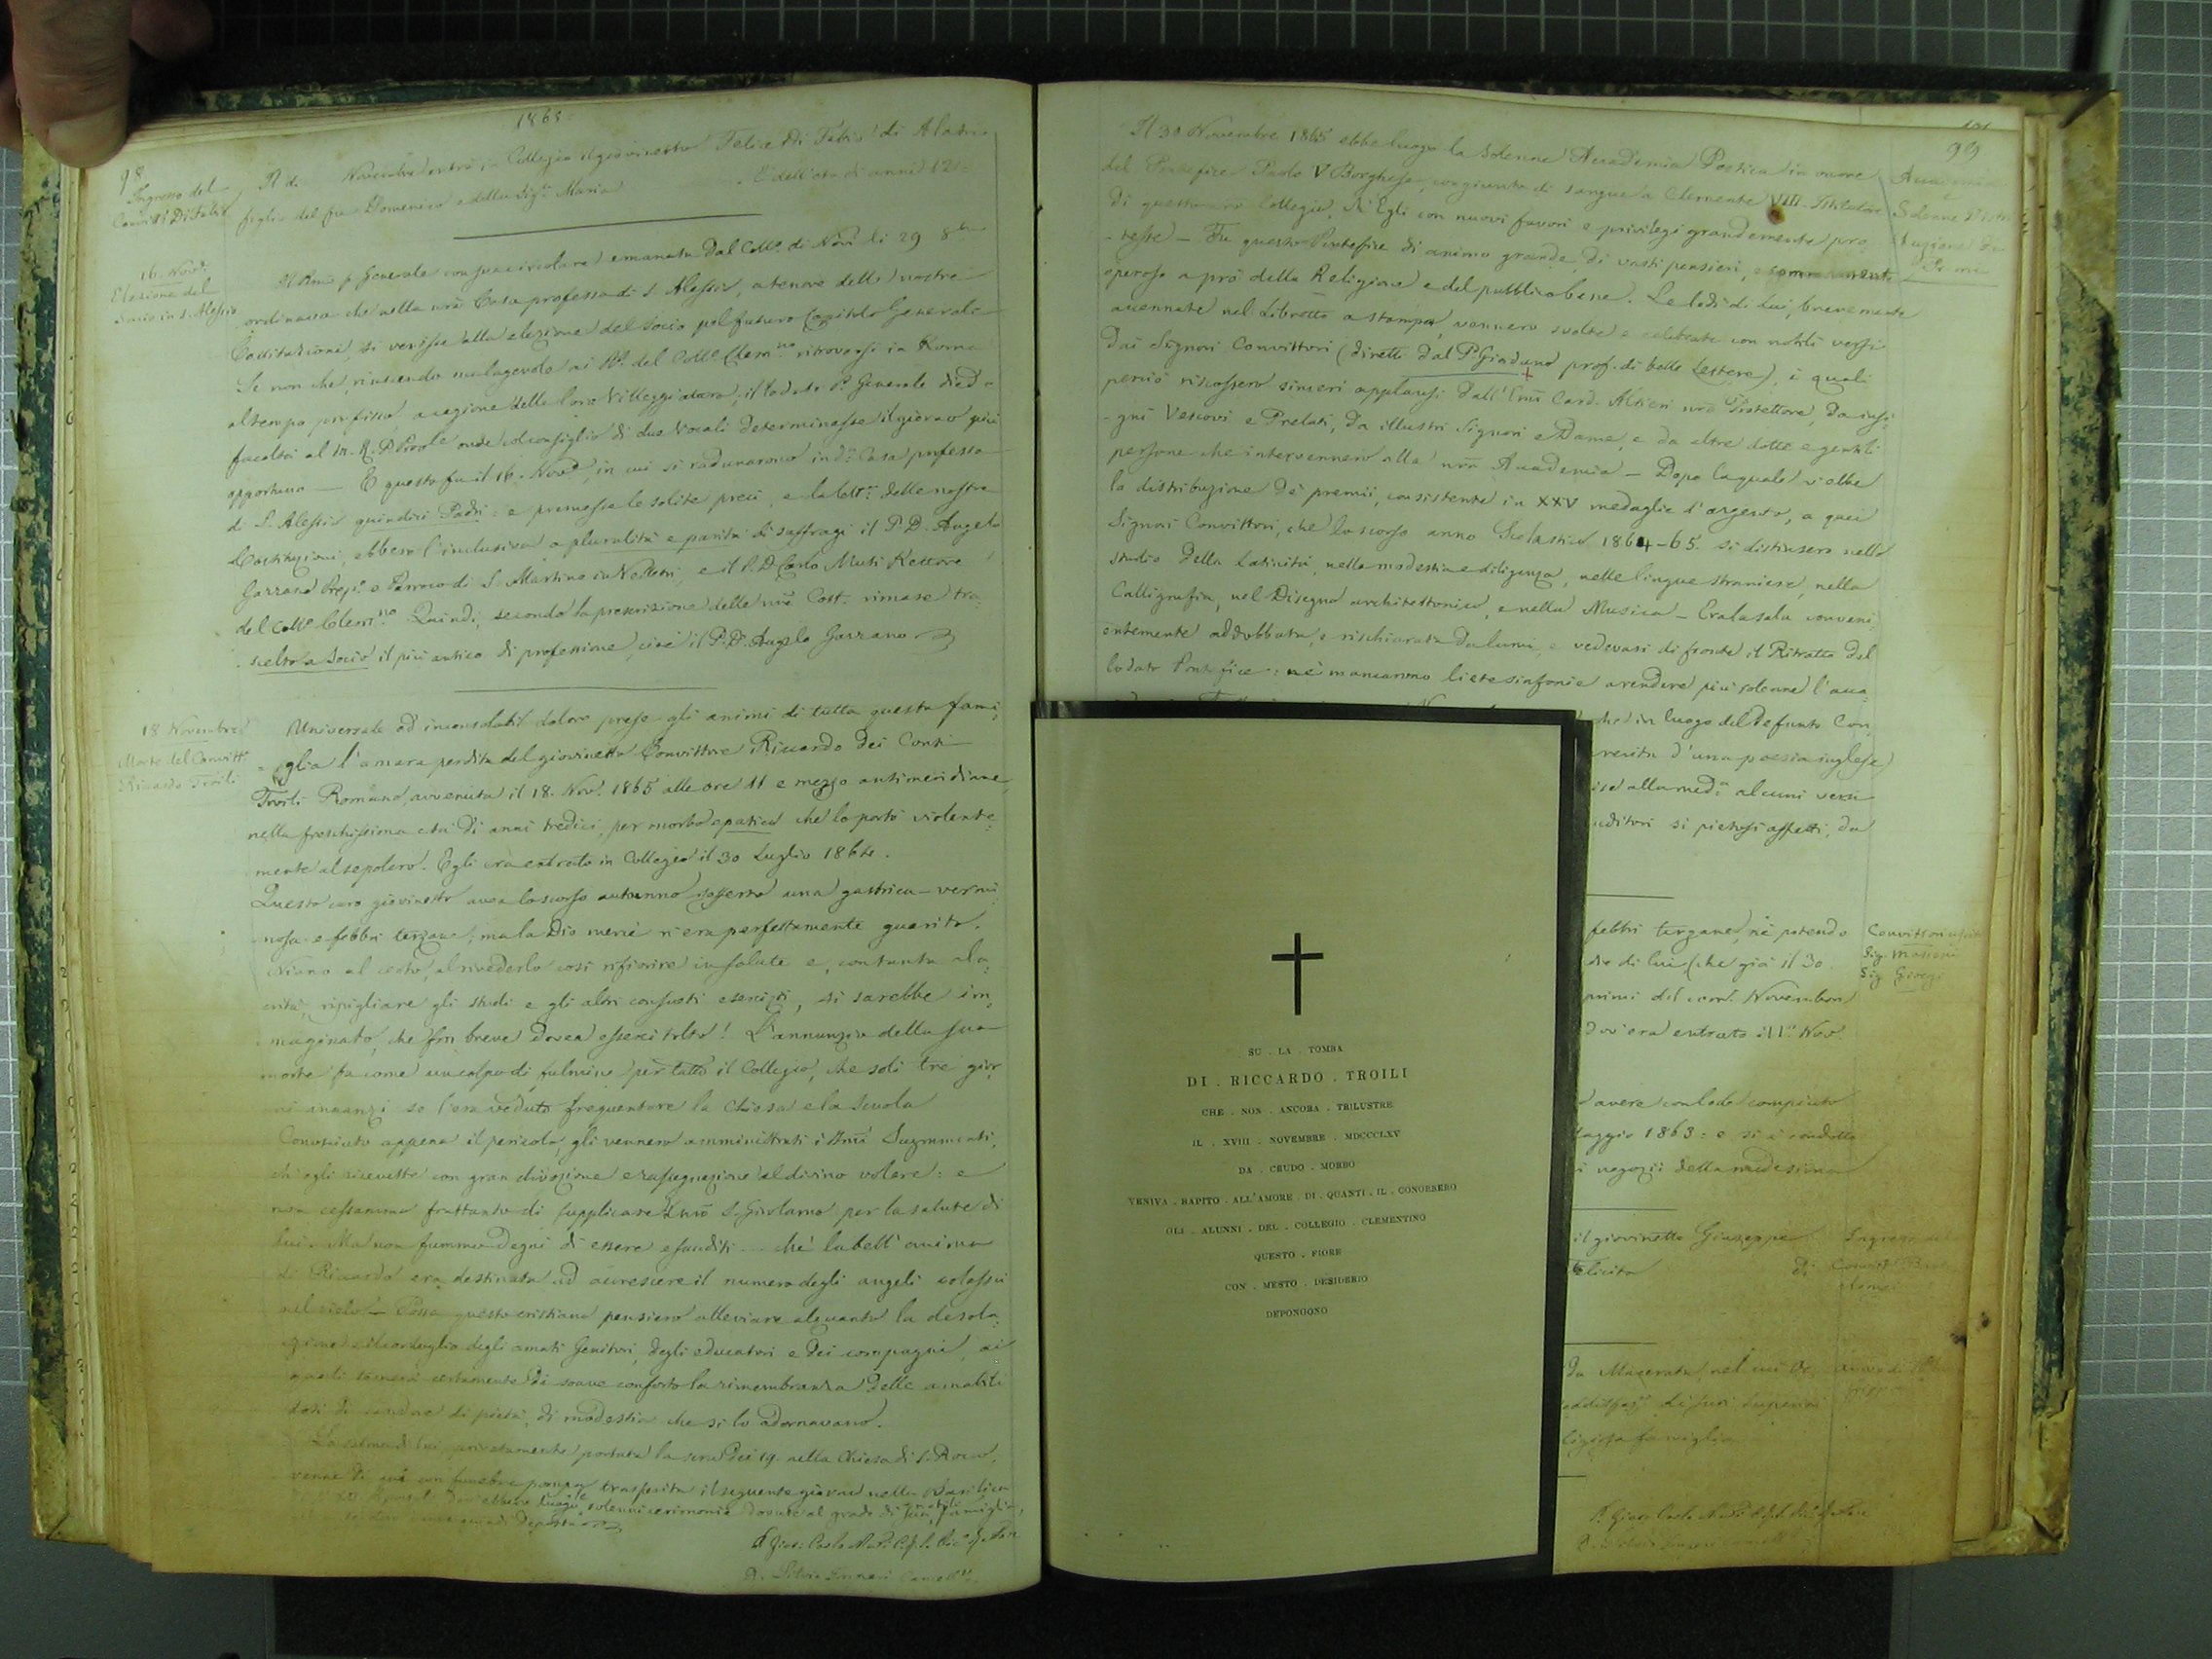 1865
98
Ingresso del
Convitt. Di Fabio
Il dì Novembre entrò in Collegio il giovinetto Felice Di Fabio di Alatri
figlio del fu Domenico e della Sig.ª Maria . È dell'età di anni 12
16. Nov.e
Elezione del
Socio in S. Alessio
Il Rmo P. Generale con sua circolare emanata dal Coll.o di Novi li 29 8bre
ordinava che nella nrã Casa professa di S. Alessio, a tenore delle nostre
Costituzioni, si venisse alla elezione del Socio pel futuro Capitolo Generale
Se non che, riuscendo malagevole ai PP. del Coll.o Clem.no ritrovarsi in Roma
al tempo prefisso, a cagione della loro Villeggiatura, il lodato P. Generale diede
facoltà al M. R. P. Prov.le onde col consiglio di due Vocali determinasse il giorno più
opportuno — E questo fu il 16. Nov.e, in cui si radunarono in d.a Casa professa
di S. Alessio quindici Padri: e premesse le solite preci, e la lett.a delle nostre
Costituzioni, ebbero l'inclusiva a pluralità e parità di suffragi il P. D. Angelo
Garrano Prep.o e Parroco di S. Martino in Velletri, e il P. D. Carlo Muti Rettore
del Coll.o Clem.no Quindi, secondo la prescrizione delle nrẽ Cost. rimase tra
scelto a Socio il più antico di professione, cioè il P. D. Angelo Garrano
18 Novembre
Morte del Convitt.e
Riccardo Troili
Universale ed inconsolabil dolore prese gli animi di tutta questa fami,
glia l'amara perdita del giovinetto Convittore Riccardo Dei Conti
Troili Romano, avvenuta il 18. Nov.e 1865 alle ore 11 e mezzo antimeridiane,
nella freschissima età di anni tredici, per morbo epatico che lo portò violente,
mente al sepolcro. Egli era entrato in Collegio il 30 Luglio 1864.
Questo caro giovinetto avea lo scorso autunno sofferto una gastrica-vermi
nosa e febbri terzane; ma la Dio mercè n'era perfettamente guarito.
Niuno al certo, al rivederlo così rifiorire in salute e, con tanta ala,
crità, ripigliare gli studi e gli altri consueti esercizi, si sarebbe im,
maginato, che fra breve dovea esserci tolto! L'annunzio della sua
morte fu come un colpo di fulmine per tutto il Collegio, che soli tre gior,
ni innanzi se l'era veduto frequentare la Chiesa e la Scuola
Conosciuto appena il pericolo, gli vennero amministrati i SSmi Sagramenti,
ch'egli ricevette con gran divozione e rassegnazione al divino volere: e
non cessammo frattanto di supplicare S. Girolamo per la salute di
lui. Ma non fummo degni di essere esauditi ... chè la bell'anima
di Riccardo era destinata ad accrescere il numero degli angeli colassù
nel cielo — Possa questo cristiano pensiero alleviare alquanto la desola,
zione e il cordoglio degli amati Genitori, degli educatori e dei compagni, ai
quali tornerà certamente di soave conforto la rimembranza delle amabili
doti di candore, di pietà, di modestia che sì lo adornavano.
La salma di lui, privatamente portata la sera dei 19 nella Chiesa di S. Rocco,
venne di qui con funebre pompa trasferita il seguente giorno nella Basilica
dov'ebbero luogo le solenni cerimonie dovute al grado di sua nobile famiglia,
99
Il 30 Novembre 1865 ebbe luogo la Solenne Accademia Poetica in onore
del Pontefice Paolo V Borghese, congiunto di sangue a Clemente VIII. Istitutore
di questo nrõ Collegio, ch'Egli con nuovi favori e privilegi grandemente pro,
tesse — Fu questo Pontefice di animo grande, di vasti pensieri, e sommamente
operoso a prò della Religione e del pubblico bene. Le lodi di Lui, brevemente
accennate nel libretto a stampa, vennero svolte e celebrate con nobili versi
dai Signori Convittori (diretti dal P. Giordano prof. di belle Lettere), i quali
perciò riscossero sinceri applausi dall'Emõ Card. Altieri nrõ Protettore, da insi,
gni Vescovi e Prelati, da illustri Signori e Dame, e da altre dotte e gentili
persone che intervennero alla nrã Accademia — Dopo la quale vi ebbe
la distribuzione de' premii, consistente in XXV medaglie d'argento, a quei
Signori Convittori, che lo scorso anno Scolastico 1864-65. si distinsero nello
studio della Latinità, nella modestia e diligenza, nelle lingue straniere, nella
Calligrafia, nel Disegno architettonico, e nella Musica — Era la sala conveni,
entemente addobbata, e rischiarata da lumi, e vedevasi di fronte il Ritratto del
lodato Pontefice: nè mancarono liete sinfonie a rendere più solenne l'acca
Accademia
e
Solenne Distri
buzione de
Premi
che in luogo del defunto Con
recita d'una poesia inglese)
alla med.a alcuni versi
uditori sì pietosi affetti, da
febbri terzane, nè potendo
di lui (che già il 30
primi del corr.e Novembre)
dov'era entrato il 1.o Nov.
Sig. Massimi
Sig. Giorgi
avere con lode compiuto
Maggio 1863: e si è condotto
i negozii della medesima
il giovinetto Giuseppe
Felicita di
Ingresso del
Convitt.
da Macerata, nel cui
famiglia
SU . LA . TOMBA
DI . RICCARDO . TROILI
CHE . NON . ANCORA . TRILUSTRE
IL . XVIII . NOVEMBRE . MDCCCLXV
DA . CRUDO . MORBO
VENIVA . RAPITO . ALL'AMORE . DI . QUANTI . IL . CONOBBERO
GLI . ALUNNI . DEL . COLLEGIO . CLEMENTINO
QUESTO . FIORE
CON . MESTO . DESIDERIO
DEPONGONO